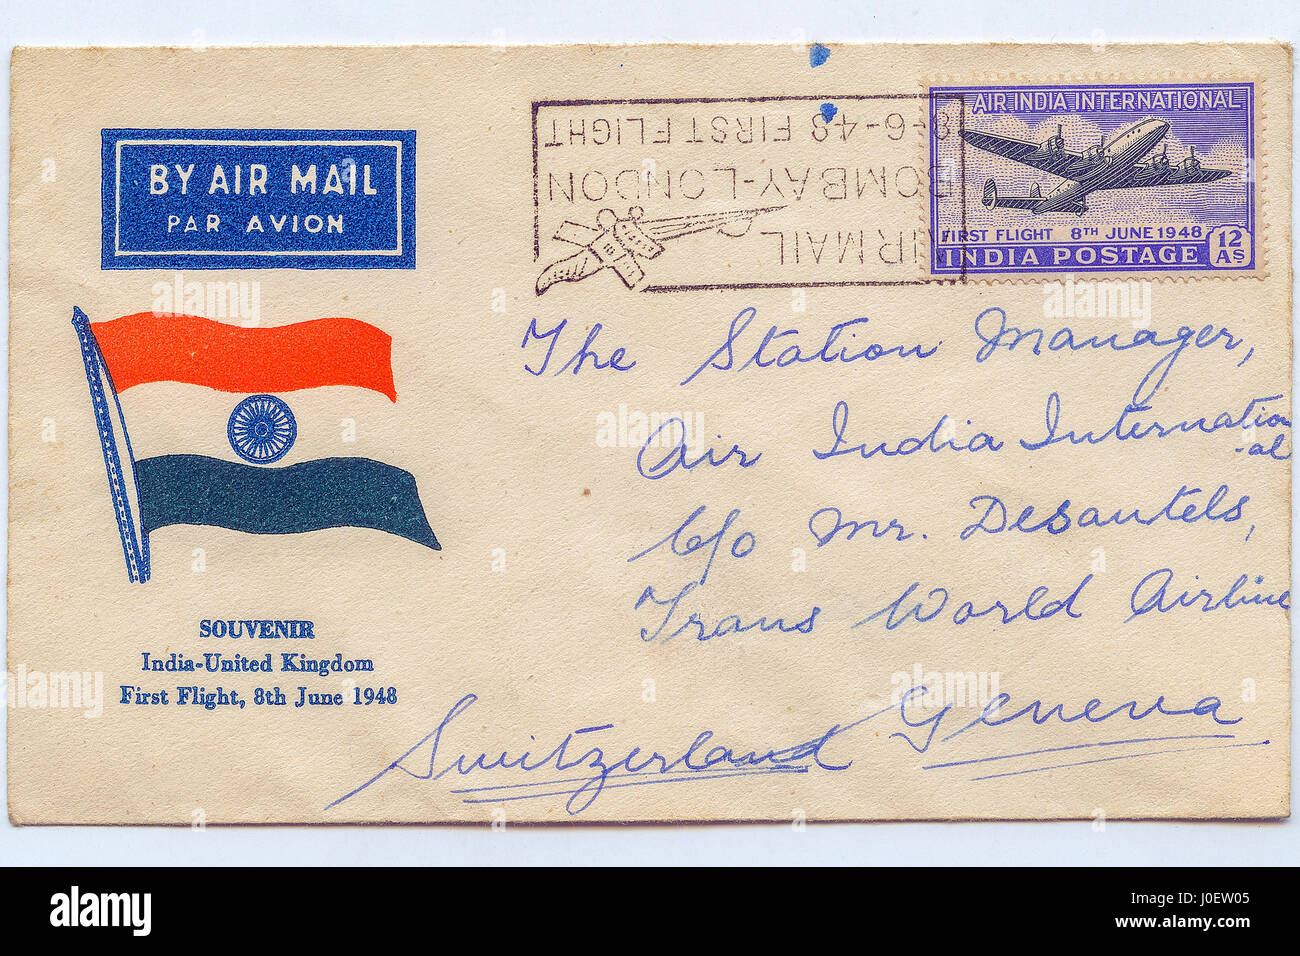 BY AIR MAIL
PAR AVION
SOUVENIR
India-United Kingdom
First Flight, 8th June 1948
AIRMAIL
BOMBAY-LONDON
8-6-48 FIRST FLIGHT
AIR INDIA INTERNATIONAL
FIRST FLIGHT 8TH JUNE 1948
INDIA POSTAGE
12
AS
The Station Manager,
Air India Internation
-al
C/o Mr. Desautels,
Trans World Airline
Geneva
Switzerland
alamy
Image ID: J0EW05
www.alamy.com